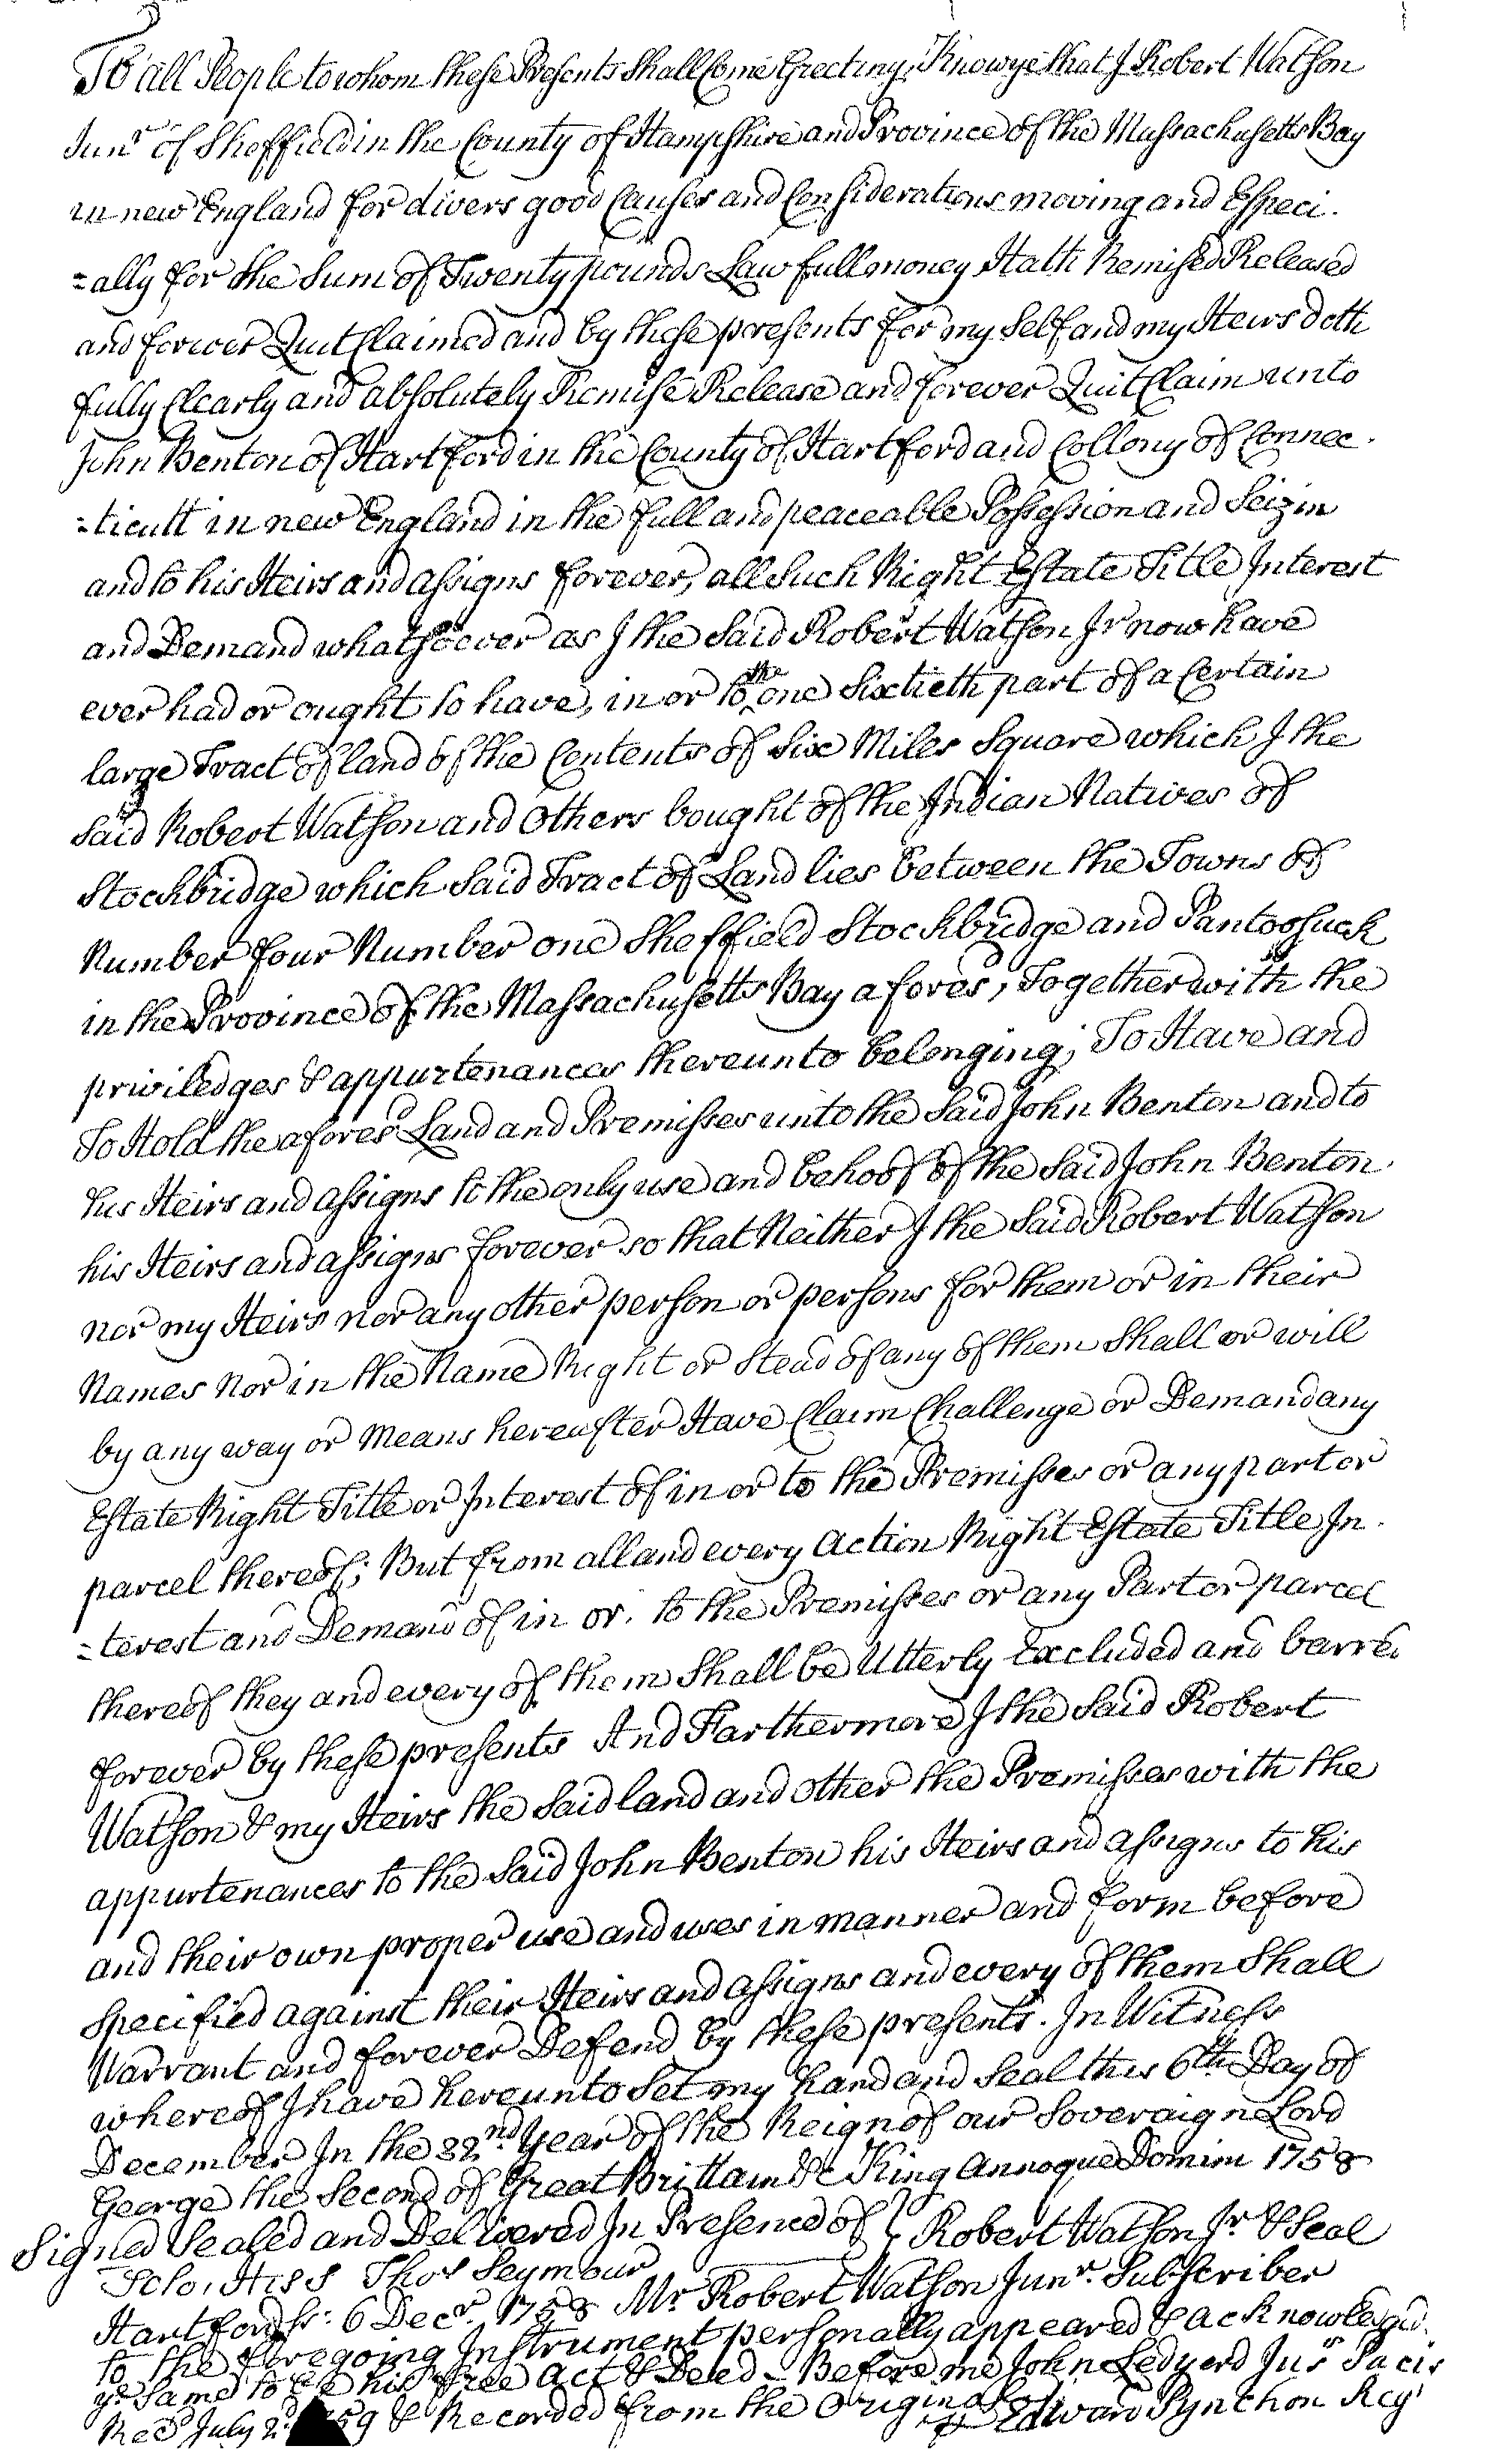 To all People to whom these Presents Shall Come Greeting, Know ye that I Robert Watson
Junr of Sheffield in the County of Hampshire and Province of the Massachusetts Bay
in new England for divers good Causes and Considerations moving and Especi-
=ally for the Sum of Twenty pounds Lawfull money Hath Remised Released
and forever Quit Claimed and by these presents for my Self and my Heirs doth
fully Clearly and absolutely Remise Release and forever Quit Claim unto
John Benton of Hartford in the County of Hartford and Collony of Connec-
=ticutt in new England in the full and peaceable Possession and Seizin
and to his Heirs and assigns forever, all Such Right Estate Title Interest
and Demand whatsoever as I the Said Robert Watson Jr now have
ever had or ought to have, in or to the one Sixtieth part of a Certain
large Tract of land of the Contents of Six Miles Square which I the
Said Robert Watson and others bought of the Indian Natives of
Stockbridge which Said Tract of Land lies between the Towns of
Number four Number one Sheffield Stockbridge and Pantoosuck
in the Province of the Massachusetts Bay aforesd, Together with the
priviledges & appurtenances thereunto belonging; To Have and
To Hold the aforesd Land and Premisses unto the Said John Benton and to
his Heirs and assigns to the only use and behoof of the Said John Benton
his Heirs and assigns forever so that Neither I the Said Robert Watson
nor my Heirs nor any other person or persons for them or in their
Names Nor in the Name Right or Stead of any of them Shall or will
by any way or Means hereafter Have Claim Challenge or Demand any
Estate Right Title or Interest of in or to the Premisses or any part or
parcel thereof; But from all and every action Right Estate Title In-
=terest and Demand of in or to the Premisses or any Part or parcel
thereof they and every of them Shall be Utterly Excluded and barred
forever by these presents And Farthermore I the Said Robert
Watson & my Heirs the Said land and other the Premisses with the
appurtenances to the Said John Benton his Heirs and assigns to his
and their own proper use and uses in manner and form before
Specified against their Heirs and assigns and every of them Shall
Warrant and forever Defend by these presents. In Witness
whereof I have hereunto Set my hand and Seal this 6th Day of
December In the 32nd Year of the Reign of our Soveraign Lord
George the Second of Great Brittain &c King Annoque Domini 1758
Signed Sealed and Delivered In Presence of } Robert Watson Jr & Seal
Thos Seymour
Hartford Ss: 6 Decr. 1758 Mr Robert Watson Junr. Subscriber
to the foregoing Instrument personally appeared & acknowledgd
ye Same to be his free act & Deed - Before me John Ledyerd Jus Pacis
Recd July 2d & Recorded from the Original Edward Pynchon Regr